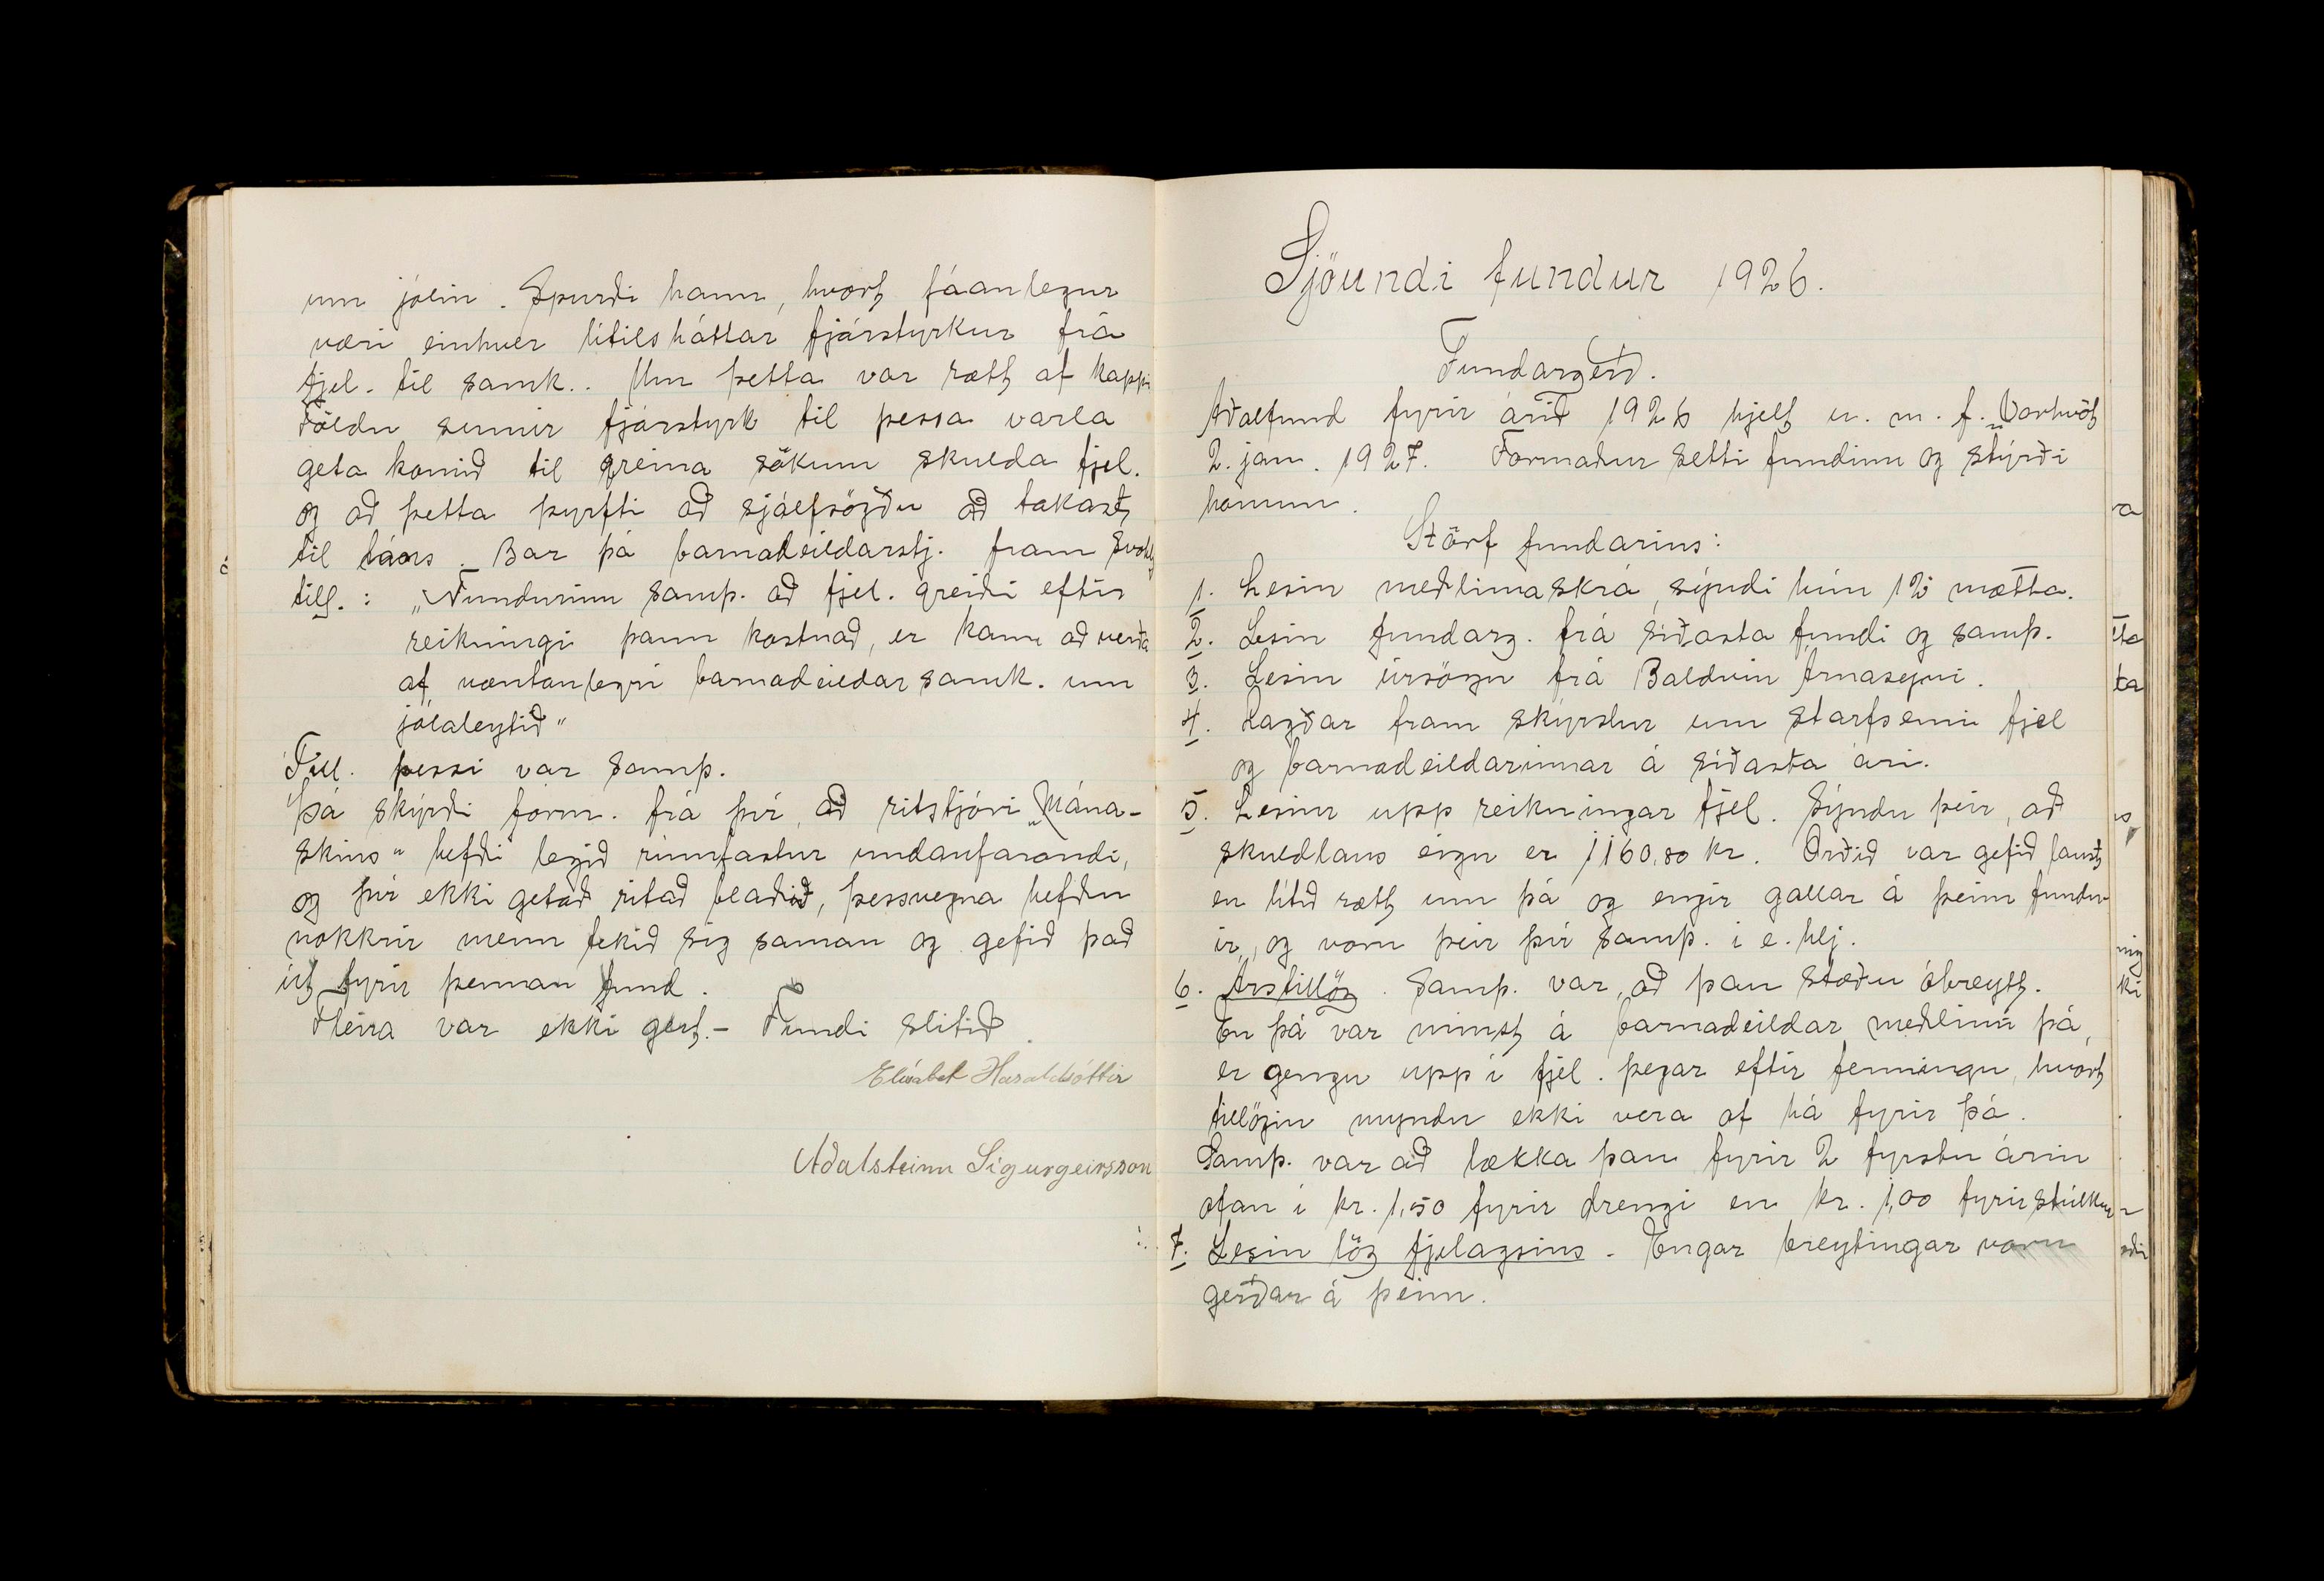 um jólin. Spurði hann, hvort fáanlegur
væri einhver lítilsháttar fjárstyrkur frá
fjel. til samk.. Um þetta var rætt af kappi
Töldu sumir fjárstyrk til þessa varla
geta komið til greina sökum skulda fjel.
og að þetta þyrfti að sjálfsögðu að takast
til láns. Bar þá barnadeildarstj. fram svohl
till.: „Fundurinn samþ. að fjel. greiði eftir
reikningi þann kostnað, er kann að verða
af væntanlegri barnadeildar samk. um
jólaleytið"
Till. þessi var samþ.
Þá skýrði form. frá því, að ritstjóri „Mána-
skins" hefði legið rúmfastur undanfarandi,
og því ekki getað ritað blaðið, þessvegna hefðu
nokkrir menn tekið sig saman og gefið það
út fyrir þennan fund.
Fleira var ekki gert. - Fundi slitið.
Elísabet Haraldsóttir
Aðalsteinn Sigurgeirsson
Sjöundi fundur 1926.
Fundargerð.
Aðalfund fyrir árið 1926 hjelt u. m. f. „Vorhvöt
2. jan. 1927. Formaður setti fundinn og stýrði
honum.
Störf fundarins:
1. Lesin meðlimaskrá, sýndi hún 12 mætta.
2. Lesin fundarg. frá síðasta fundi og samþ.
3. Lesin úrsögn frá Baldvin Árnasyni.
4. Lagðar fram skýrslur um starfsemi fjel
og barnadeildarinnar á síðasta ári.
5. Lesnir upp reikningar fjel. Sýndu þeir, að
skuldlaus eign er 1160,80 kr. Orðið var gefið laust
en lítið rætt um þá og engir gallar á þeim fundu
ir, og voru þeir því samþ. í e. hlj.
6. Árstillög. Samþ. var, að þau stæðu óbreytt.
En þá var minst á barnadeildar meðlimi þá,
er gengu upp í fjel. þegar eftir fermingu, hvort
tillögin myndu ekki vera of há fyrir þá.
Samþ. var að lækka þau fyrir 2 fyrstu árin
ofan í kr. 1,50 fyrir drengi en kr. 1,00 fyrir stúlkur
7. Lesin lög fjelagsins. Engar breytingar voru
gerðar á þeim.